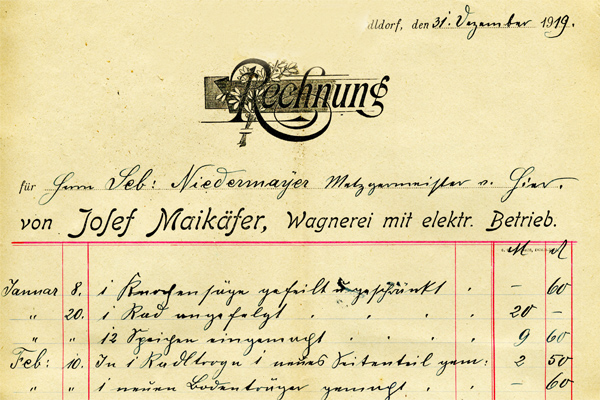 dldorf, den 31. Dezember 1919.
Rechnung
für Herrn Seb: Niedermayer Metzgermeister v. Hier.
von Josef Maikäfer, Wagnerei mit elektr. Betrieb.
M ₰
Januar 8. 1 Knochensäge gefeilt u. geschränkt " — 60
" 20. 1 Rad angefelgt " " " " 20 —
" " 12 Speichen eingemacht " " " 9 60
Feb: 10. In 1 Radltrogn 1 neues Seitenteil gem: 2 50
" " 1 neuen Bodenträger gemacht " " — 60